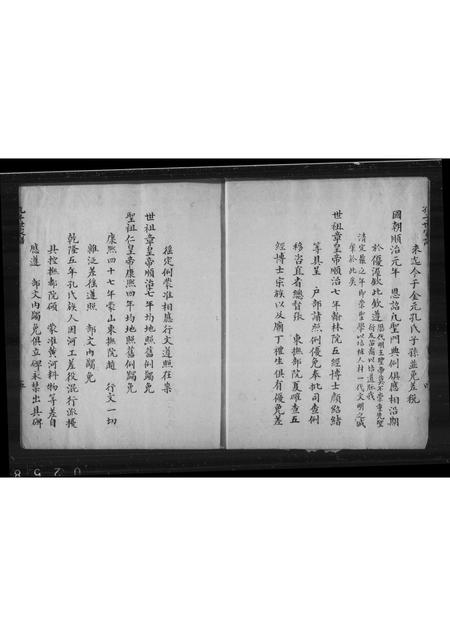 宋迄今子金元孔氏子孫並免差稅
國朝順治元年 恩詔凡聖門典例俱應相沿期
於優渥欽此欽遵歷代明王聖帝莫不崇重先聖
我
清定鼎之年即崇聖學以培植人材一代文明之盛
肇於此矣
世祖章皇帝順治七年翰林院五經博士顏
等具呈 戶部請照例優免奉批司查例
移咨直省總督張 東撫部院夏確查五
經博士宗族以及廟丁禮生俱有優免差
徭定例蒙准相應行文遵照在案
世祖章皇帝順治七年均地照舊例蠲免
聖祖仁皇帝康熙四年均地照舊例蠲免
康熙四十七年蒙山東撫部院趙 行文一切
雜泛差徭遵照 部文內蠲免
乾隆五年孔氏族人因河工差役混行派擾
具控撫部院碩 蒙准黃河料物等差自
應遵 部文內蠲免俱立碑永禁出具碑
0258